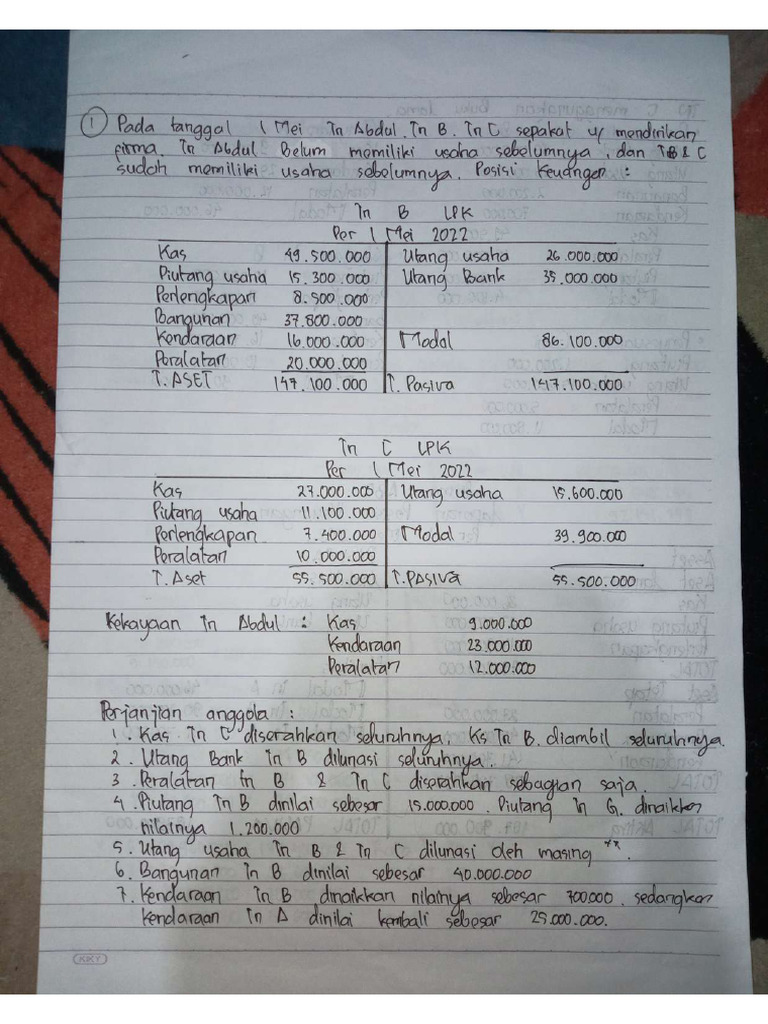 1 Pada tanggal 1 Mei Tn Abdul, Tn B, Tn C sepakat u/ mendirikan
firma. Tn Abdul Belum memiliki usaha sebelumnya, dan TB & C
sudah memiliki usaha sebelumnya. Posisi Keuangan :
Tn B LPK
Per 1 Mei 2022
Kas 49.500.000 Utang usaha 26.000.000
Piutang usaha 15.300.000 Utang Bank 35.000.000
Perlengkapan 8.500.000
Bangunan 37.800.000
Kendaraan 16.000.000 Modal 86.100.000
Peralatan 20.000.000
T. ASET 147.100.000 T. Pasiva 147.100.000
Tn C LPK
Per 1 Mei 2022
Kas 27.000.000 Utang usaha 15.600.000
Piutang usaha 11.100.000
Perlengkapan 7.400.000 Modal 39.900.000
Peralatan 10.000.000
T. Aset 55.500.000 T. PASiva 55.500.000
Kekayaan Tn Abdul : Kas 9.000.000
Kendaraan 23.000.000
Peralatan 12.000.000
Perjanjian anggota :
1. Kas Tn C diserahkan seluruhnya, Ks Tn B. diambil seluruhnya.
2. Utang Bank Tn B dilunasi seluruhnya.
3. Peralatan Tn B & Tn C diserahkan sebagian saja.
4. Piutang Tn B dinilai sebesar 15.000.000. Piutang Tn G. dinaikkan
nilainya 1.200.000
5. Utang usaha Tn B & Tn C dilunasi oleh masing **.
6. Bangunan Tn B dinilai sebesar 40.000.000
7. Kendaraan Tn B dinaikkan nilainya sebesar 700.000, sedangkan
Kendaraan Tn A dinilai kembali sebesar 25.000.000.
KKY